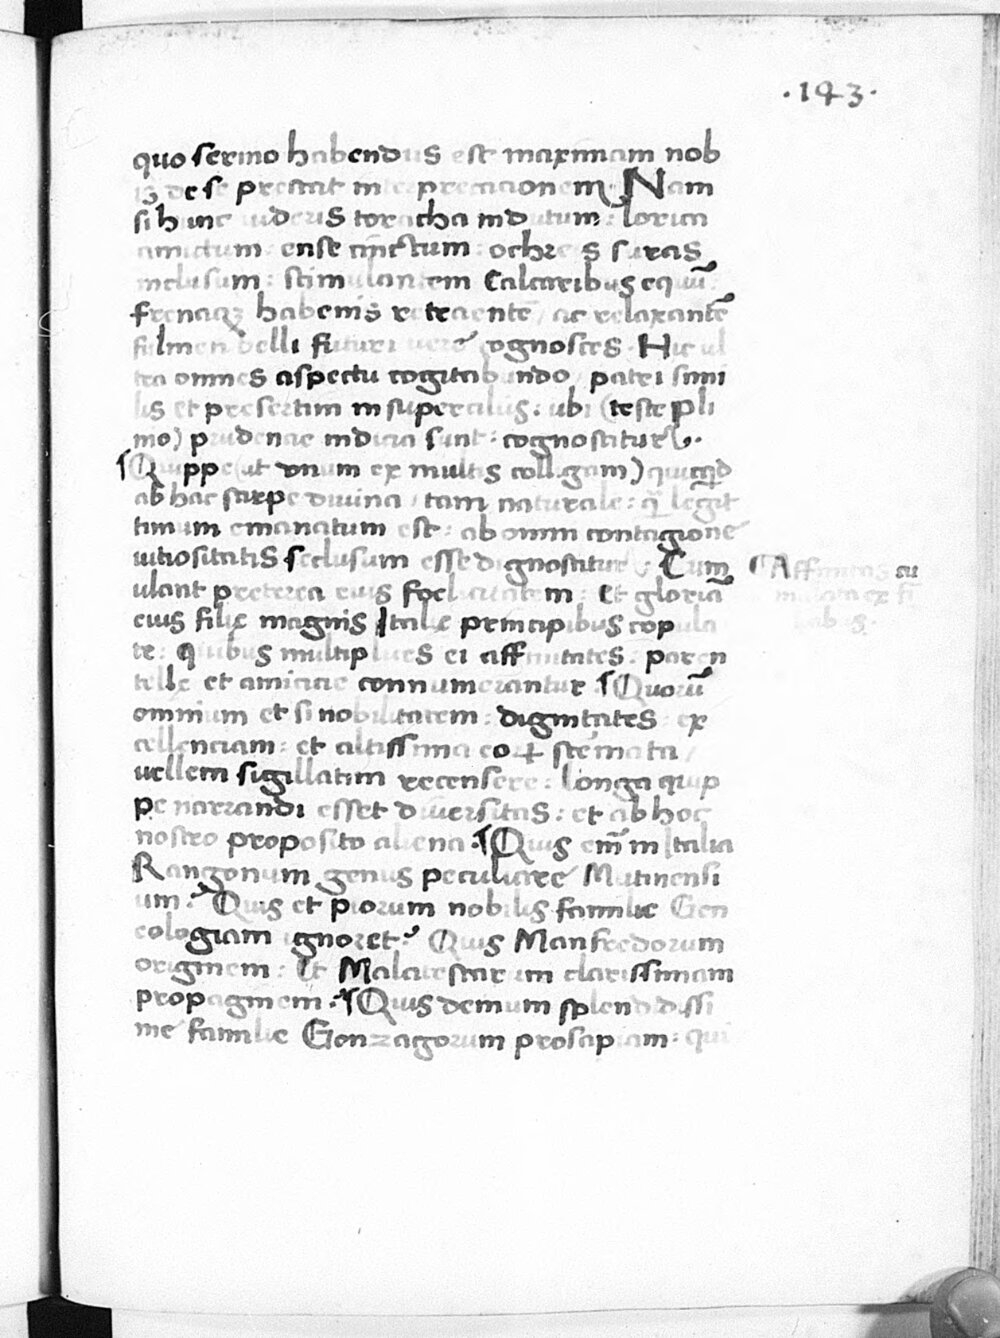 ·143·
quo sermo habendus est maximam nob
is de se prestat interpretationem. Nam
si hunc uideris toracha indutum: lorica
amictum: ense cinctum: ochreis suras
inclusum: stimulantem Calcaribus equũ:
frenaqʒ habenis retraente / ac relaxantẽ
fulmen belli futuri uere cognosces. Hic ul
tra omnes aspectu cogitabundo / patri simi
lis et presertim in supercilijs: ubi (teste pli
nio) prudencie indicia sunt: cognoscitur.
Quippe (ut vnum ex multis colligam) quicqd
ab hac stirpe diuina / tam naturale: q̃ legit
timum emanatum est: ab omni contagione
uitiositatis seclusum esse dignoscitur. Cum
Affinitas cu
mulata ex fi
liabus.
ulant preterea eius foelicitatem: Et gloriã
eius filię magnis Italię principibus copula
te: quibus multiplices ei affinitates: paren
tellę et amicicie connumerantur. Quorũ
omnium et si nobilitatem: dignitates: ex
cellenciam: et altissima eoꝝ stemata /
uellem sigillatim recensere: longa quip
pe narrandi esset diuersitas: et ab hoc
nostro proposito aliena. Quis em̃ in Italia
Rangonum genus peculiare Mutinensi
um? Quis et piorum nobilis familie Gen
eologiam ignoret? Quis Manfredorum
originem: Et Malatestarum clarissimam
propaginem. Quis demum splendidissi
me familie Gonzagorum prosapiam: qui